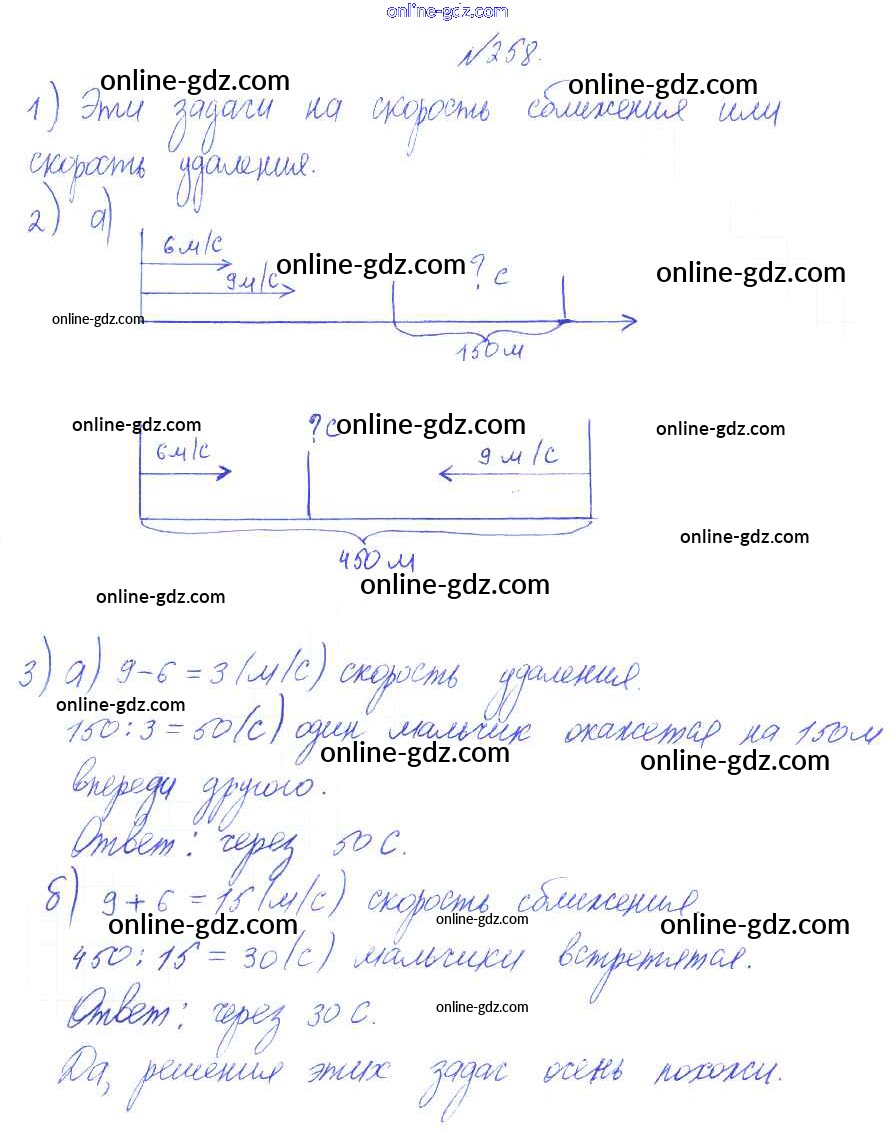 online-gdz.com
№258.
online-gdz.com online-gdz.com
1) Эти задачи на скорость сближения или
скорость удаления.
2) а)
6м/с
online-gdz.com ? с online-gdz.com
9м/с
online-gdz.com
150м
online-gdz.com ?с online-gdz.com online-gdz.com
6м/с 9м/с
online-gdz.com
450м
online-gdz.com online-gdz.com
3) а) 9-6=3(м/с) скорость удаления.
online-gdz.com
150:3=50(с) один мальчик окажется на 150м
online-gdz.com online-gdz.com
впереди другого.
Ответ: через 50 с.
б) 9+6=15(м/с) скорость сближения
online-gdz.com online-gdz.com online-gdz.com
450:15=30(с) мальчики встретятся.
online-gdz.com
Ответ: через 30 с.
Да, решения этих задач очень похожи.